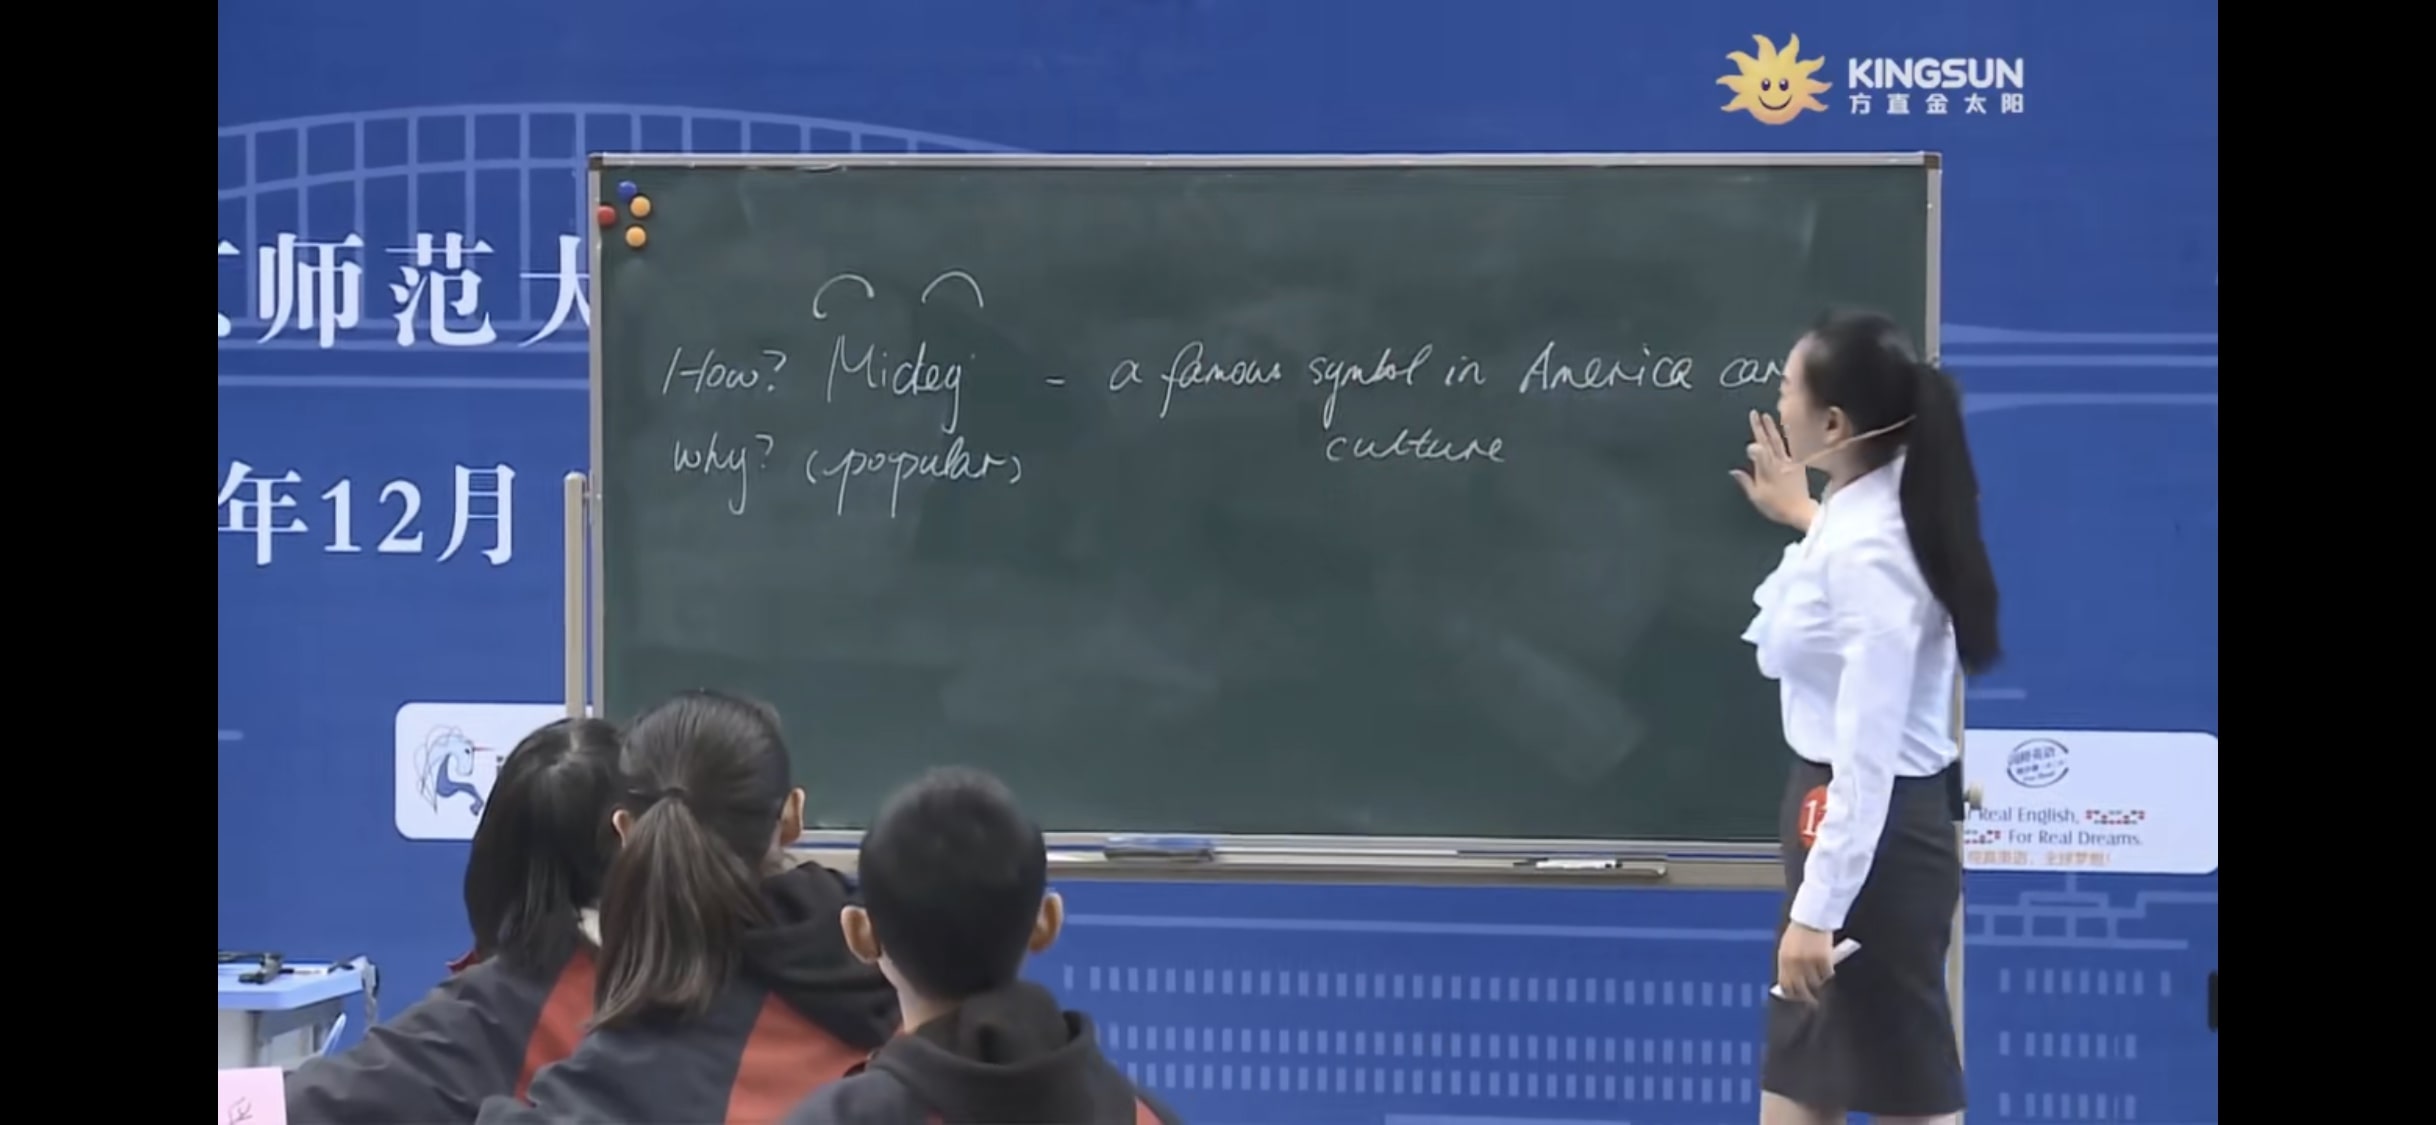 KINGSUN
方直金太阳
师范大
年12月
How? Mickey - a famous symbol in America car
why? (popular) culture
Real English,
For Real Dreams.